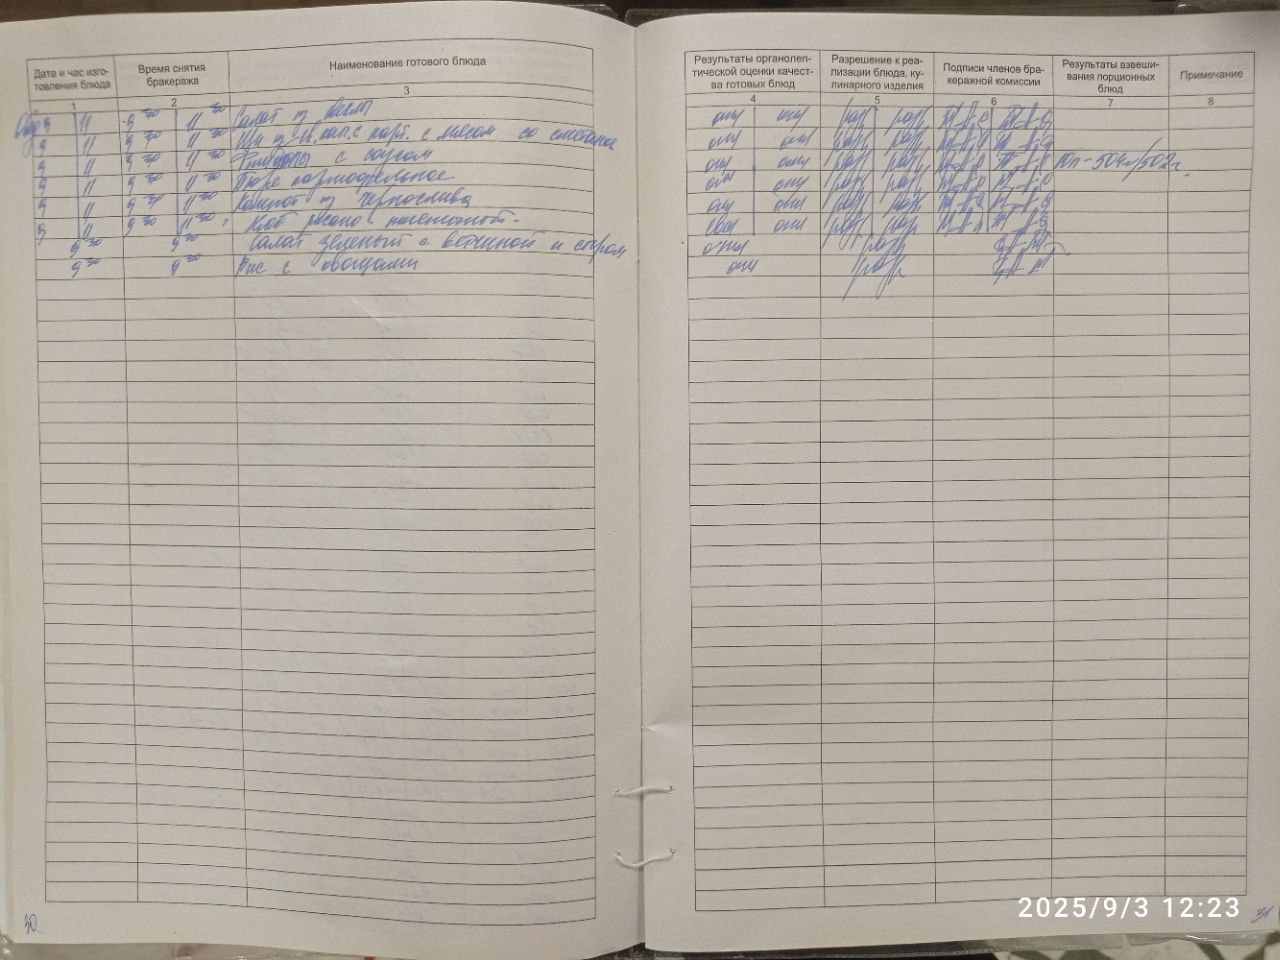 Дата и час изго-
товления блюда
Время снятия
бракеража
Наименование готового блюда
1 2 3
9 11 9 30 11 30 Салат из свеклы
9 11 9 30 11 30 Щи из св. кап. с карт. с мясом со сметаной
9 11 9 30 11 30 с соусом
9 11 9 30 11 30 Пюре картофельное
9 11 9 30 11 30 Компот из чернослива
9 11 9 30 11 30 Хлеб ржано-пшеничный
9 30 9 30 Салат зеленый с ветчиной и сыром
9 30 9 30 Рис с овощами
30
Результаты органолеп-
тической оценки качест-
ва готовых блюд
Разрешение к реа-
лизации блюда, ку-
линарного изделия
Подписи членов бра-
керажной комиссии
Результаты взвеши-
вания порционных
блюд
Примечание
4 5 6 7 8
отл отл разр разр
отл отл разр разр
отл отл разр разр 10п-504г/502г.
отл отл разр разр
отл отл разр разр
отл разр разр
отл разр
отл разр
2025/9/3 12:23
31